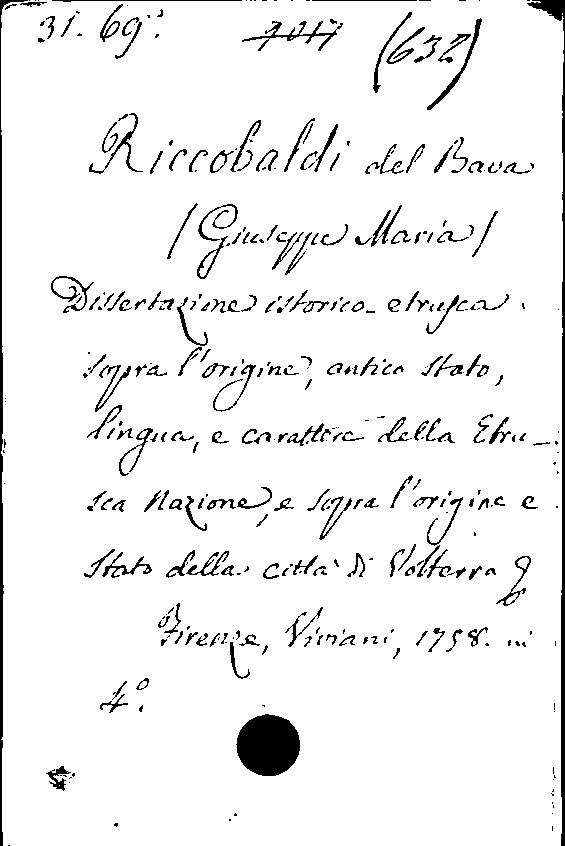 31. 69². 7017 (632)
Riccobaldi del Bava
/Giuseppe Maria/
Dissertazione istorico-etrusca
sopra l'origine, antico stato,
lingua, e carattere della Etru-
sca Nazione, e sopra l'origine e
stato della città di Volterra &
Firenze, Viviani, 1758. in
4°.